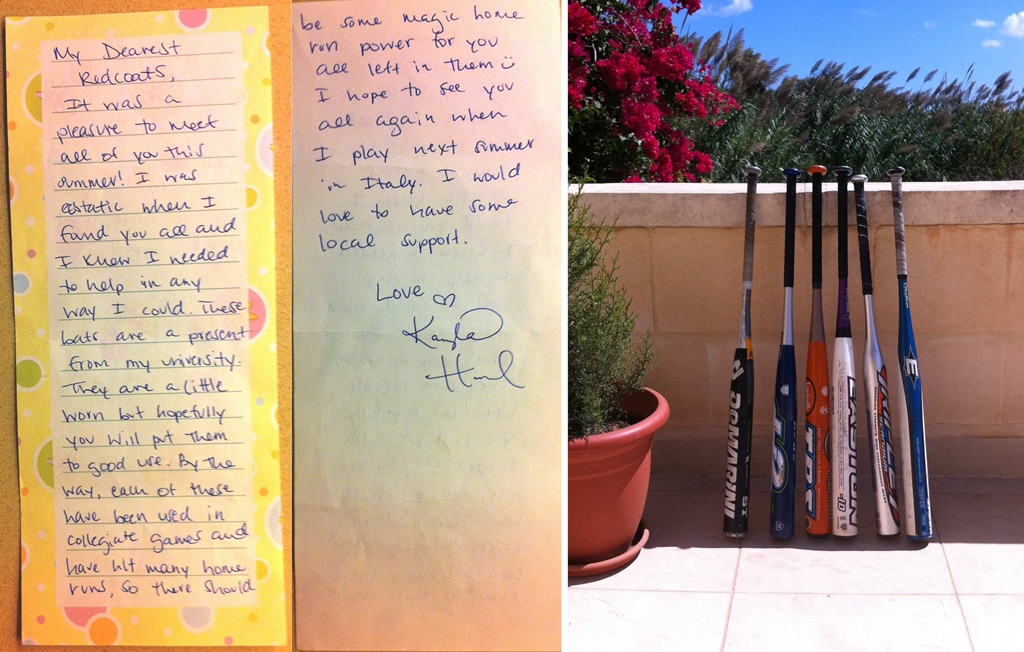 My Dearest
Redcoats,
It was a
pleasure to meet
all of you this
summer! I was
ecstatic when I
found you all and
I knew I needed
to help in any
way I could. These
bats are a present
from my university.
They are a little
worn but hopefully
you will put them
to good use. By the
way, each of these
have been used in
collegiate games and
have hit many home
runs, so there should
be some magic home
run power for you
all left in them
I hope to see you
all again when
I play next summer
in Italy. I would
love to have some
local support.
Love
Kayla
DEMARINI
TPS
-10
E